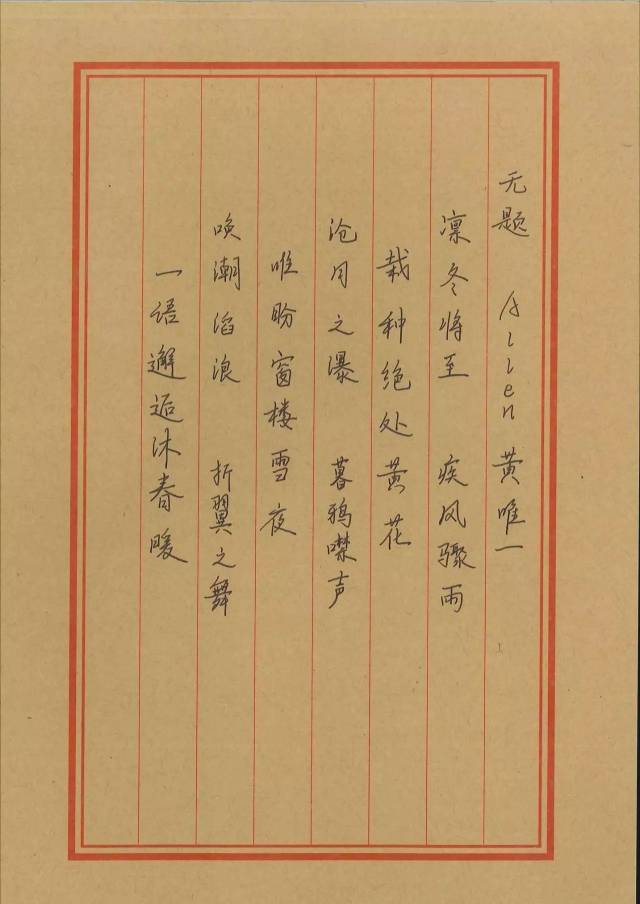 无题 Allen 黄唯一
凛冬将至 疾风骤雨
栽种绝处黄花
沧月之瀑 暮鸦噤声
唯盼窗楼雪夜
唤潮滔浪 折翼之舞
一语邂逅沐春暖